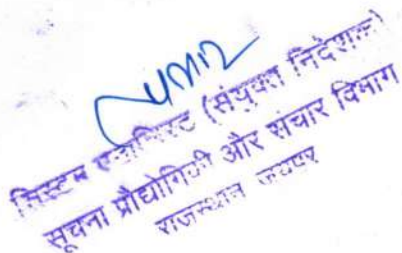 सिस्टम एनालिस्ट (संयुक्त निदेशक)
सूचना प्रौद्योगिकी और संचार विभाग
राजस्थान जयपुर